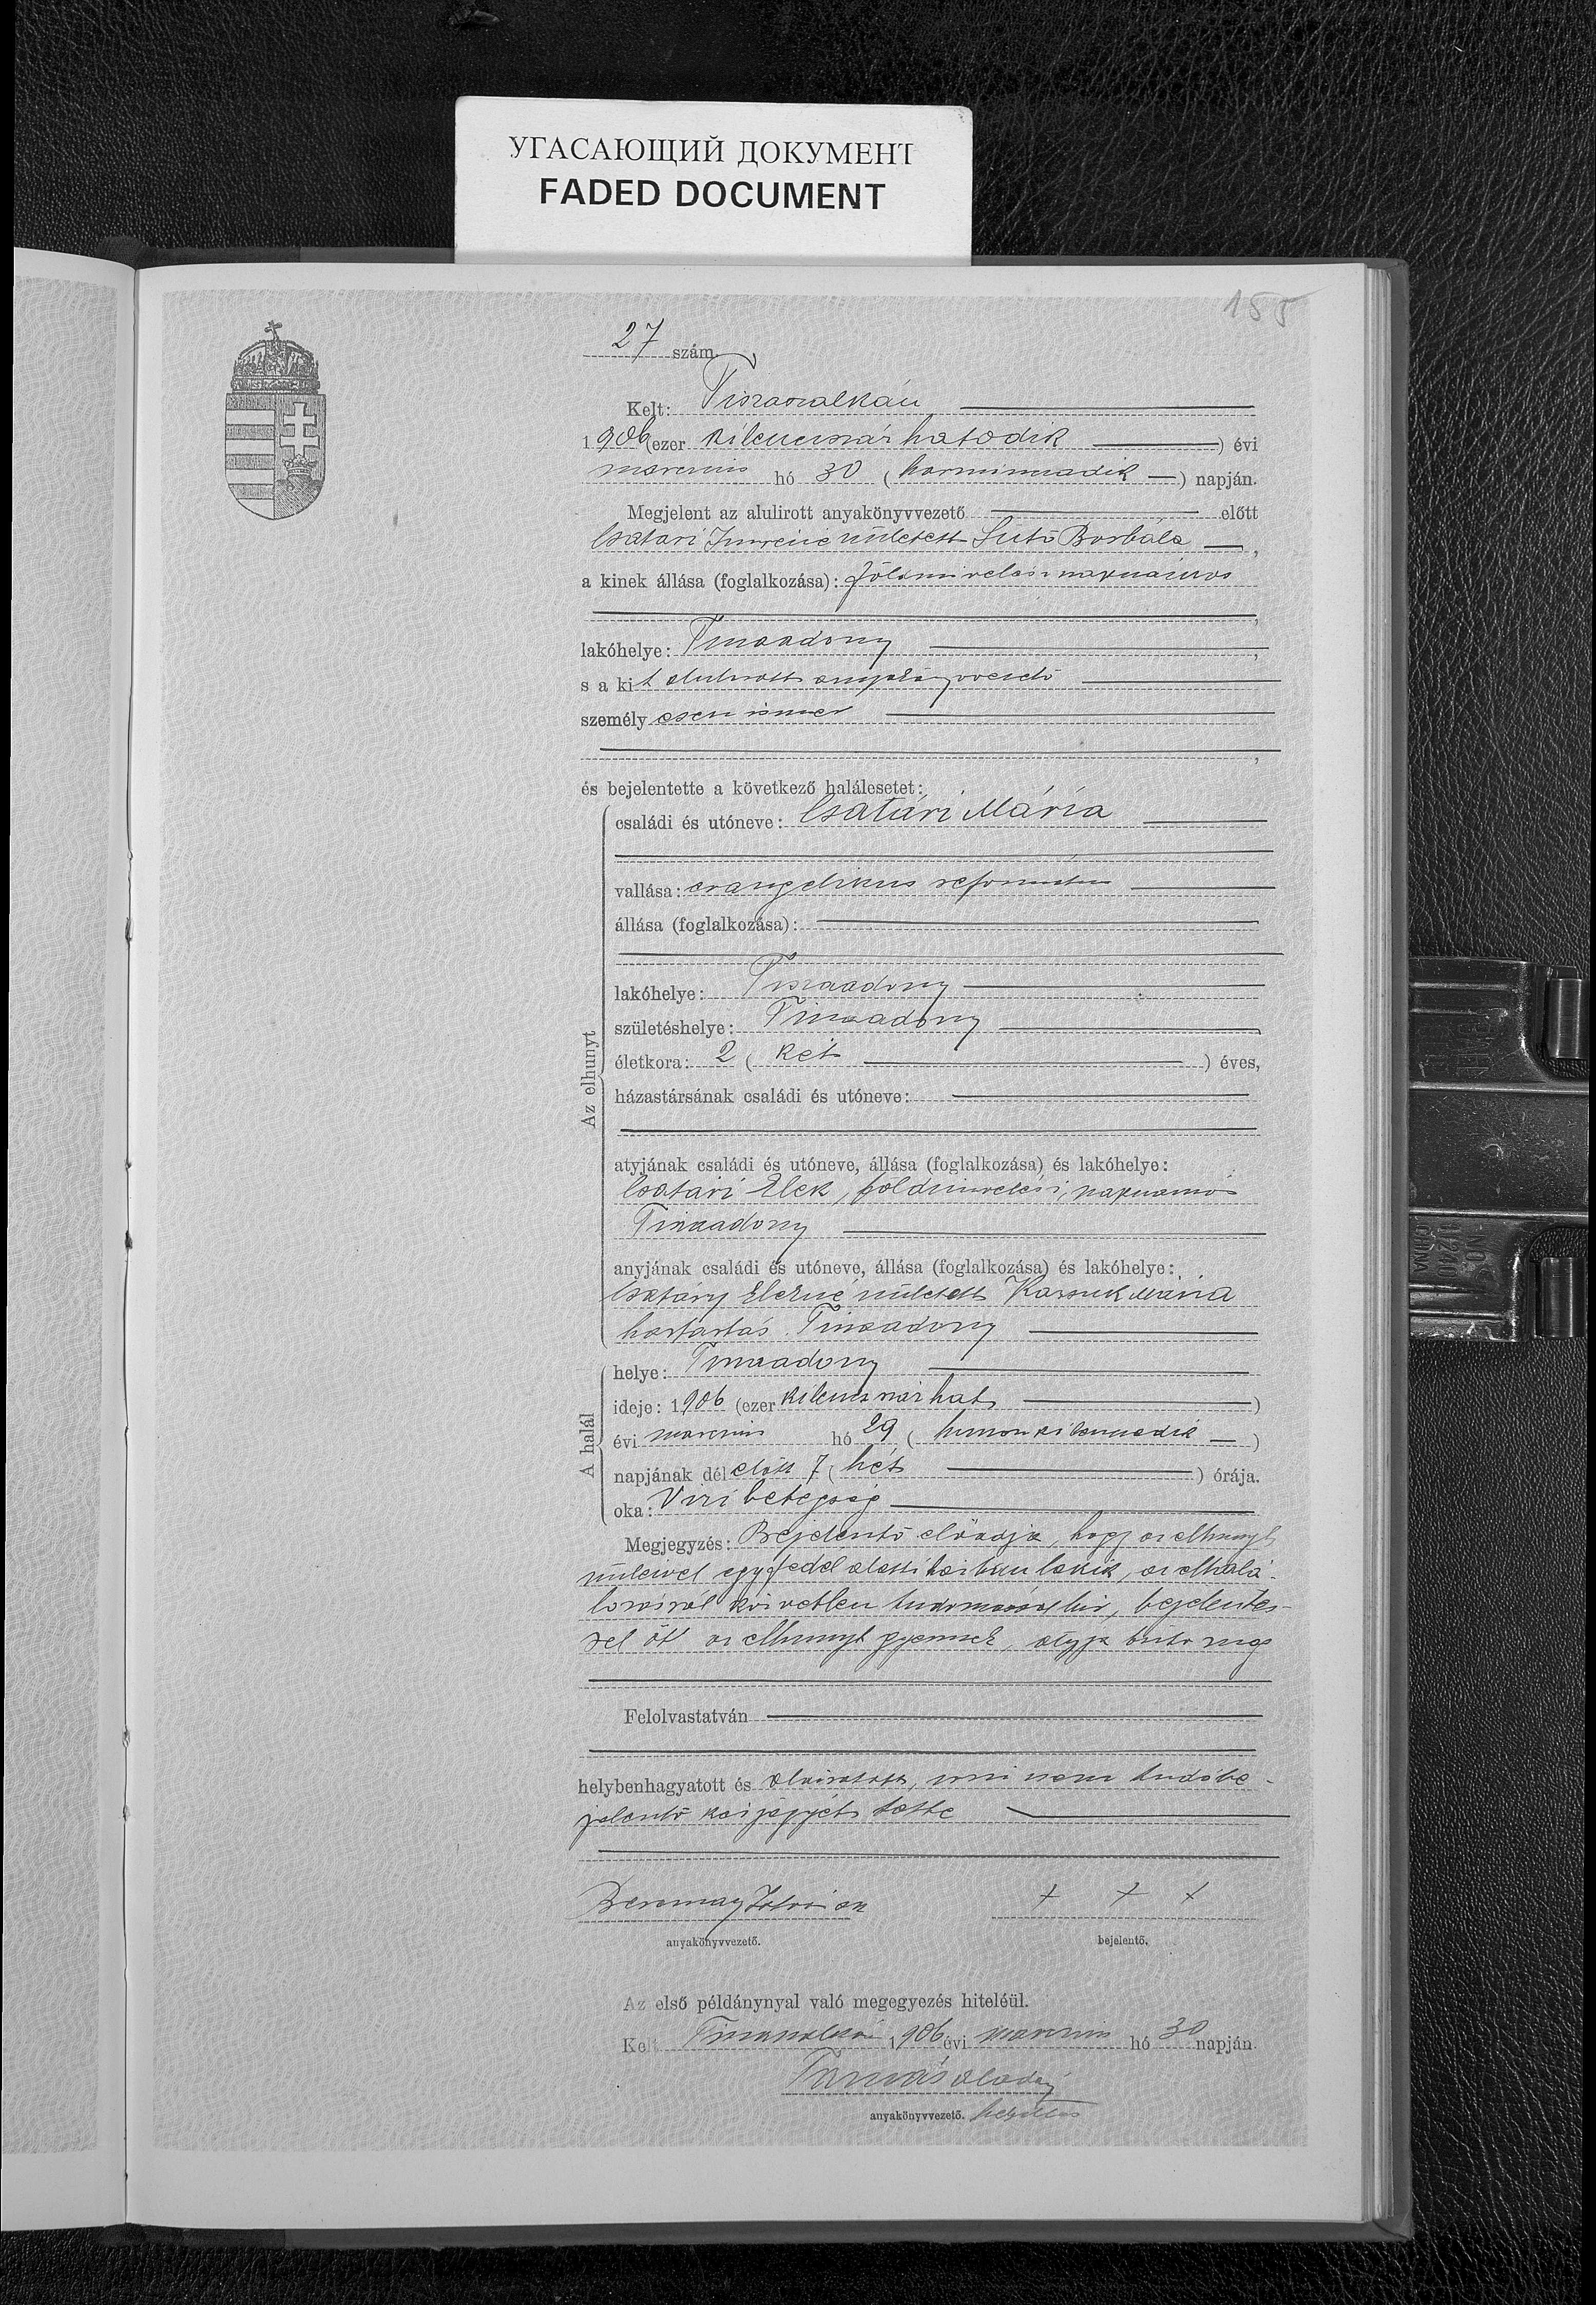 УГАСАЮЩИЙ ДОКУМЕНТ
FADED DOCUMENT
155
27 szám.
Kelt: Tiszaszalkán
1906 (ezer kilencszáz hatodik) évi
marczius hó 30 (harminczadik) napján.
Megjelent az alulirott anyakönyvvezető előtt
Csatári Imréné született Sütő Borbála,
a kinek állása (foglalkozása): földmivelési napszámos
lakóhelye: Tiszaadony,
s a kit alulirott anyakönyvvezető
személyesen ismer,
és bejelentette a következő halálesetet:
Az elhunyt
családi és utóneve: Csatári Mária
vallása: evangelikus reformatus
állása (foglalkozása):
lakóhelye: Tiszaadony
születéshelye: Tiszaadony
életkora: 2 (két) éves,
házastársának családi és utóneve:
atyjának családi és utóneve, állása (foglalkozása) és lakóhelye:
Csatári Elek, földmivelési napszámos
Tiszaadony
anyjának családi és utóneve, állása (foglalkozása) és lakóhelye:
Csatáry Elekné született Mária
háztartás Tiszaadony
A halál
helye: Tiszaadony
ideje: 1906 (ezer kilencszáz hat)
évi marczius hó 29 (huszonkilenczedik)
napjának dél előtt 7 (hét) órája.
oka: Vizi betegség
Megjegyzés: Bejelentő előadja, hogy az elhunyt
szüleivel egy fedél alatti házban lakik, az elhalá-
lozásról közvetlen tudomással bir, bejelentés-
sel őt az elhunyt gyermek atyja bizta meg
Felolvastatván
helybenhagyatott és aláiratott, irni nem tudó be-
jelentő kézjegyét tette
István + + +
anyakönyvvezető. bejelentő.
Az első példánynyal való megegyezés hiteléül.
Kelt Tiszaszalkán 1906 évi marczius hó 30 napján.
anyakönyvvezető. helyettes
NO.
CHINA